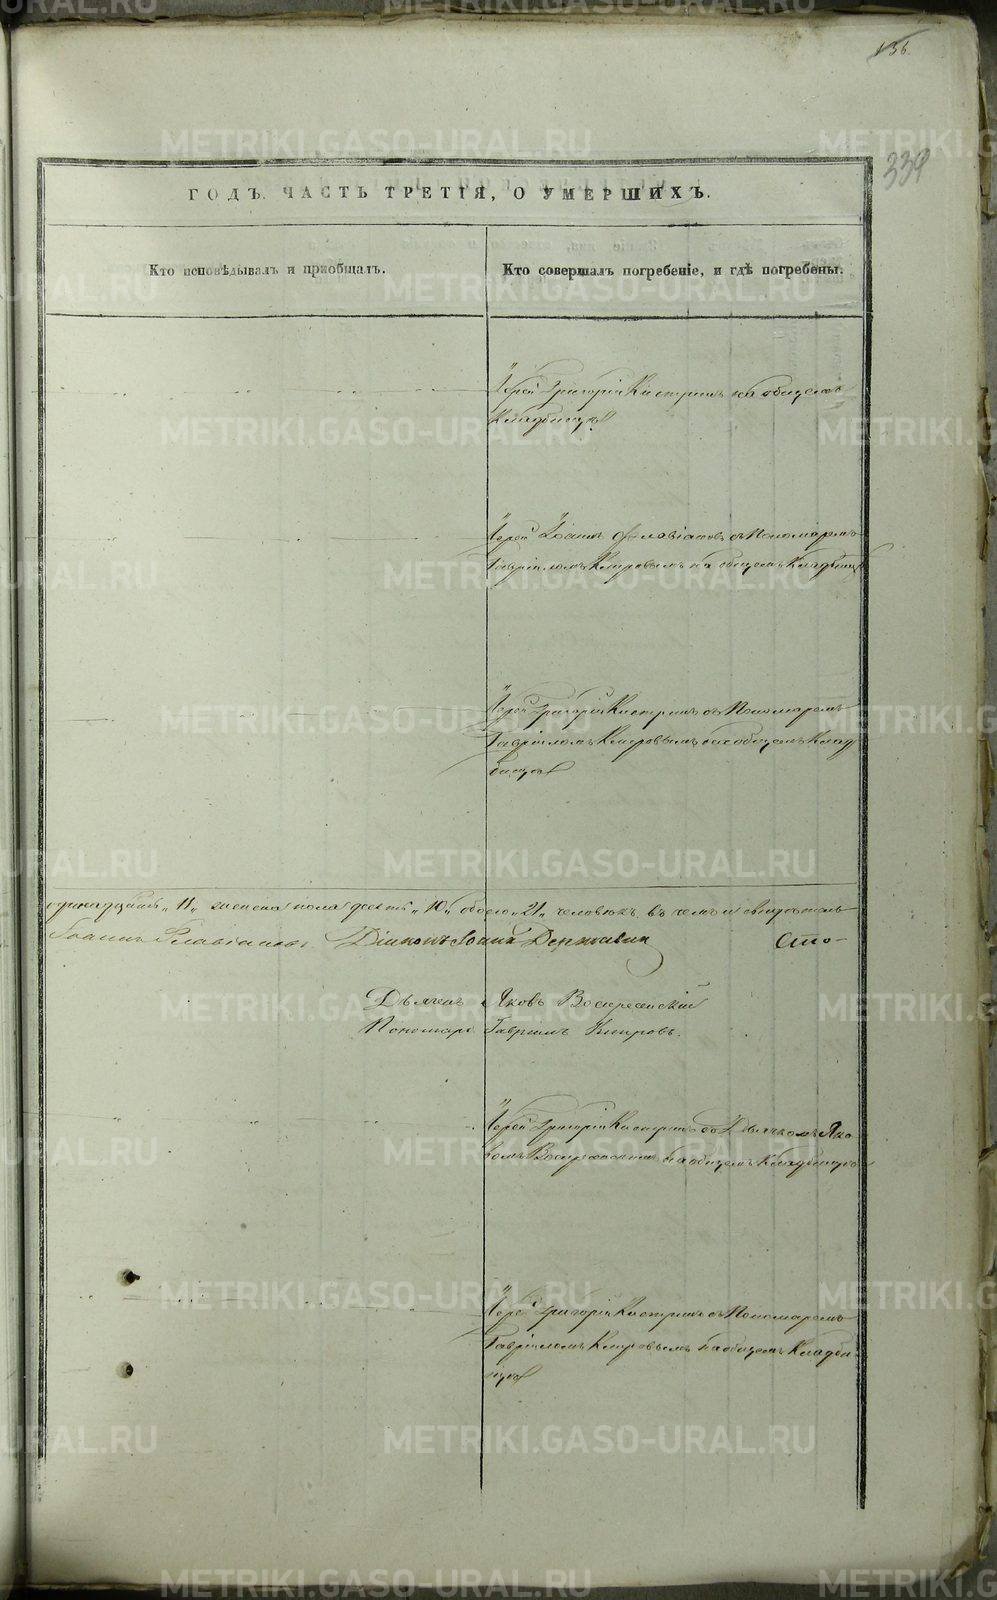 136.
339
ГОДЪ. ЧАСТЬ ТРЕТІЯ, О УМЕРШИХЪ.
Кто исповѣдывалъ и пріобщалъ.
Кто совершалъ погребеніе, и гдѣ погребены.
Іерей Григорій Кастринъ на общемъ
Кладбищѣ
Іерей Іоаннъ Флавіановъ съ Пономаремъ
Гавріиломъ Кипровымъ на общемъ Кладбищѣ
Іерей Григорій Кастринъ съ Пономаремъ
Гавріиломъ Кипровымъ на общемъ Клад-
бищѣ
одинадцать „11„ женска пола десять „10„ обоего „21„ человѣкъ, въ чемъ и свидѣтель-
Іоаннъ Флавіановъ. Діаконъ Іоаннъ Державин
Сто-
Дьячекъ Яковъ Воскресенскій
Пономарь Гавріилъ Кипровъ.
Іерей Григорій Кастринъ со Дьячкомъ Яко-
вомъ Воскресенскимъ на общемъ Кладбищѣ
Іерей Григорій Кастринъ съ Пономаремъ
Гавріиломъ Кипровымъ на общемъ Кладби-
щѣ
METRIKI.GASO-URAL.RU